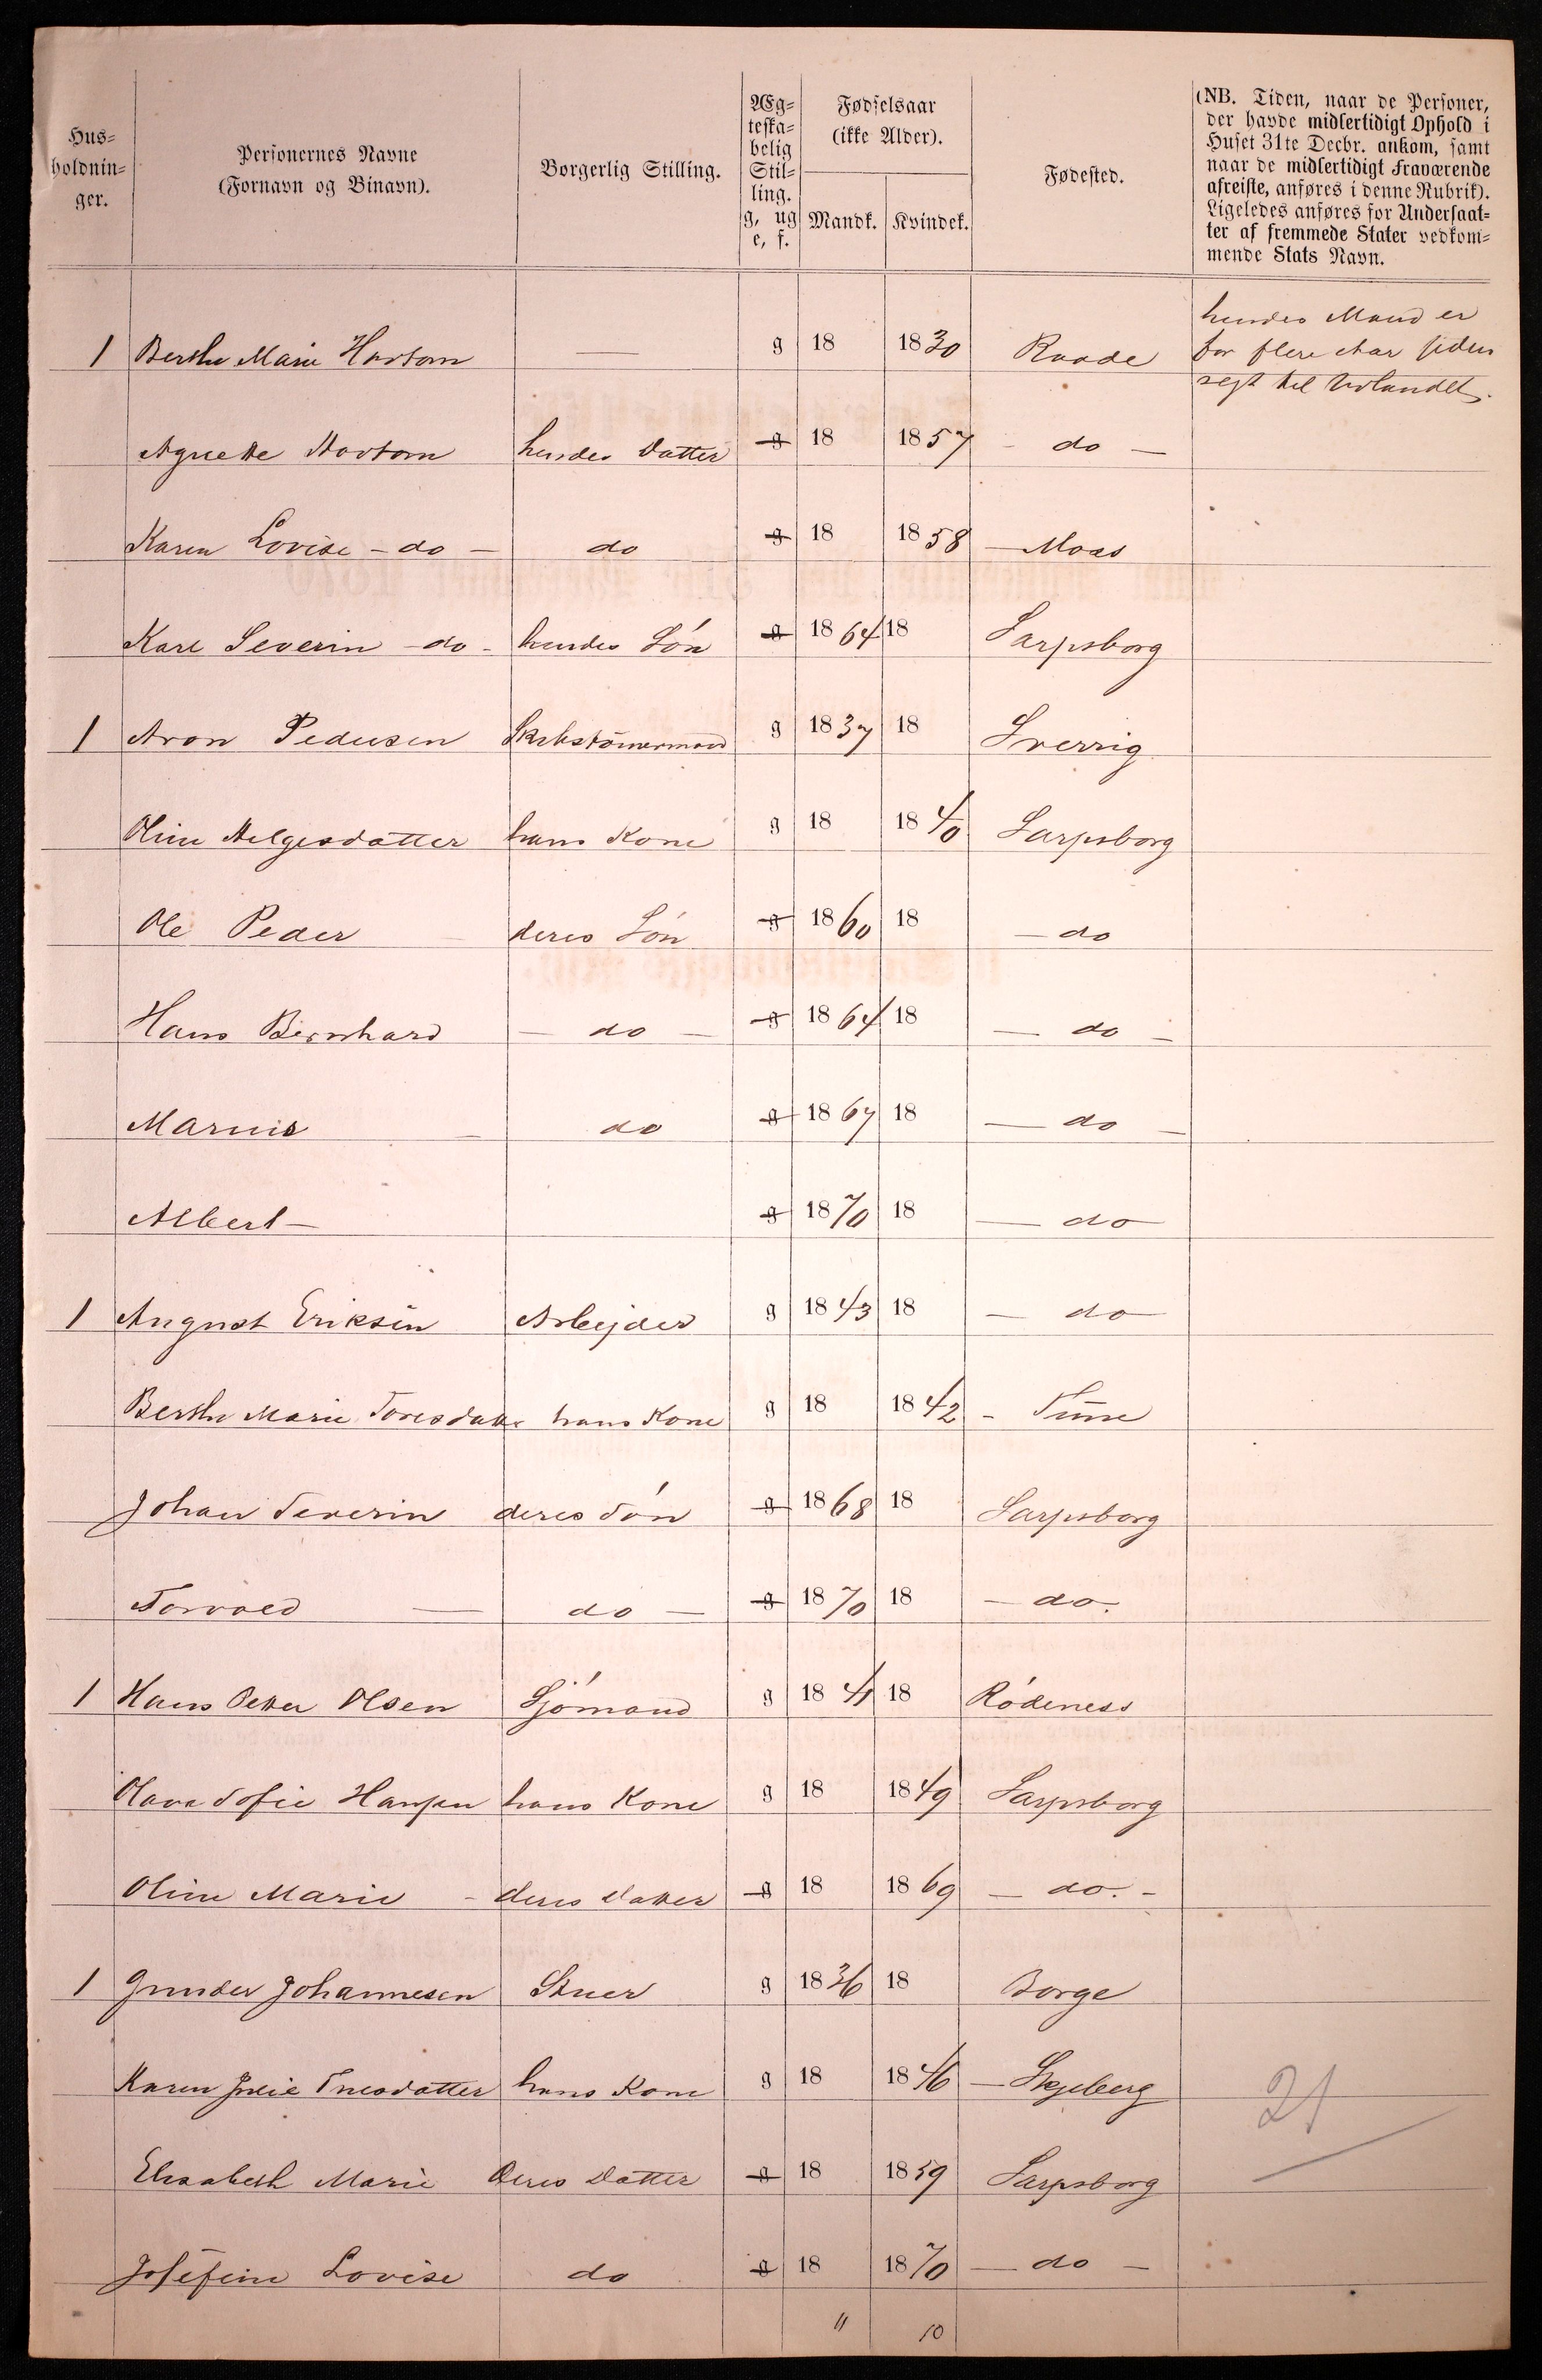 Hus=
holdnin=
ger.
Personernes Navne
(Fornavn og Binavn).
Borgerlig Stilling.
Æg=
teska=
belig
Stil=
ling.
g, ug
e, f.
Fødselsaar
(ikke Alder).
Mandk. Kvindek.
Fødested.
(NB. Tiden, naar de Personer,
der havde midlertidigt Ophold i
Huset 31te Decbr. ankom, samt
naar de midlertidigt Fraværende
afreiste, anføres i denne Rubrik).
Ligeledes anføres for Undersaat=
ter af fremmede Stater vedkom=
mende Stats Navn.
hendes Mand er
for flere Aar siden
rejst til Udlandet.
1 Berthe Marie — g 18 1830 Raade
Agnette hendes Datter g 18 1857 - do -
Karen Lovise - do - do g 18 1858 - Moss
Karl Severin - do - hendes Sön g 1864 18 Sarpsborg
1 Aron Pedersen Skibstömermand g 1837 18 Sverrig
Oline Helgesdatter hans Kone g 18 1840 Sarpsborg
Ole Peder - deres Sön g 1860 18 - do
Hans Bernhard - do - g 1864 18 - do -
Marius - do g 1867 18 - do -
Albert - g 1870 18 - do -
1 August Eriksen Arbejder g 1843 18 - do -
Berthe Marie Toresdatter hans Kone g 18 1842 - Tune
Johan Severin deres Sön g 1868 18 Sarpsborg
Torvald - do - g 1870 18 - do.
1 Hans Petter Olsen Sjömand g 1841 18 Rödeness
Olava Sofie Hansen hans Kone g 18 1849 Sarpsborg
Oline Marie - deres Datter g 18 1869 - do. -
1 Gunder Johannesen Stuer g 1836 18 Borge
Karen Julie hans Kone g 18 1846 - Skjeberg
Elisabeth Marie Deres Datter g 18 1859 Sarpsborg
Josefine Lovise do g 18 1870 - do -
11 10
21